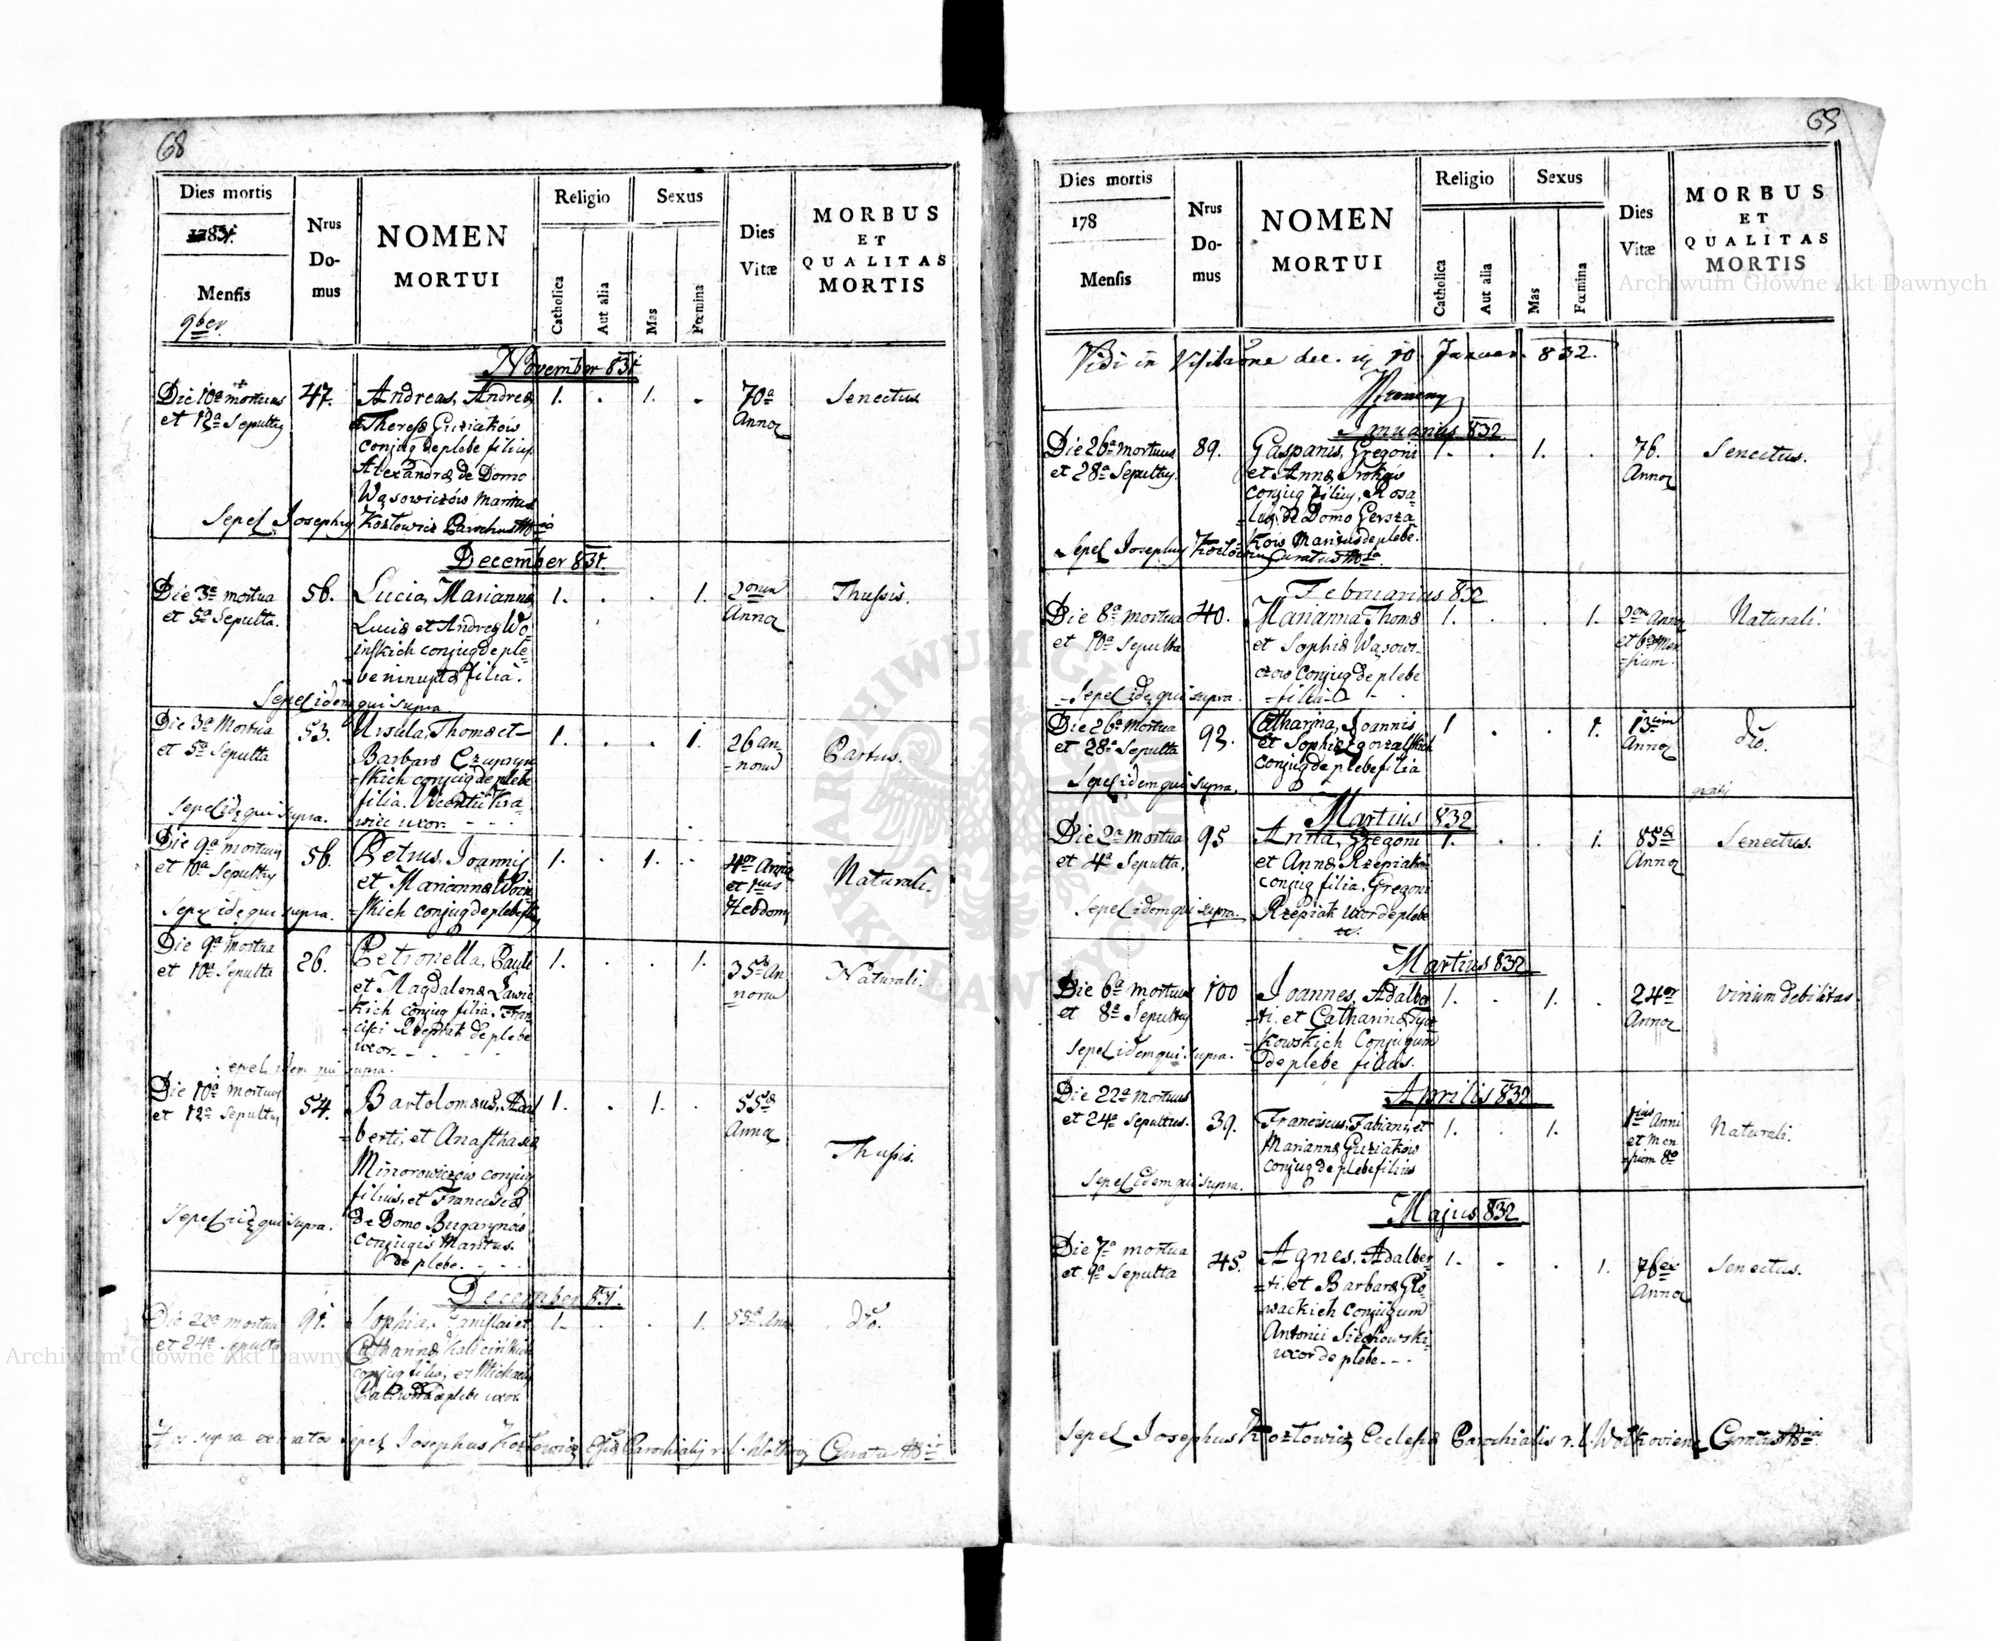 68
Dies mortis
1783i.
Mensis
9ber.
Nrus
Do-
mus
NOMEN
MORTUI
Religio
Catholica
Aut alia
Sexus
Mas
Fœmina
Dies
Vitæ
MORBUS
ET
QUALITAS
MORTIS
November 831
Die 10a mortuus 47. Andreas, Andreæ 1. . 1. . 70a Senectus
et 12a Sepultus Theresæ Guziaków Annor
conjug de plebe filius
Alexandræ de Domo
Wąsowiczów Maritus
Sepel Josephus Kozłowicz Parochus
December 831.
Die 3a mortua 56. Lucia, Marianna 1. . . 1. 2orum Thussis.
et 5a Sepulta. Lucæ et Andreæ Wo- Annor
-inskich conjug de ple-
-be ninupta filia.
Sepel idem qui supra
Die 3a Mortua 53. Ursula, Thomæ et 1. . . 1. 26 an Partus.
et 5a Sepulta Barbaræ Czupryn -norum
-skich conjug de plebe
filia. Vicentii Kra-
Sepel idq qui supra. wiec uxor. - - -
Die 9a mortuus 56. Petrus, Joannis 1. . 1. . 4or Annor Naturali.
et 10a Sepultus et Mariannæ Woin et 1ius
Sepel idq qui supra. -skich conjug de plebe filius Hebdom
Die 9a mortua 26. Petronella, Pauli 1. . . 1. 35 An Naturali.
et 10a Sepulta et Magdalenæ Ławic norum
kich conjug filia. Fran
cisci Rzepiak de plebe
uxor - - - -
Sepel idem qui supra.
Die 10a mortuus 54. Bartolomæus, Adal 1. . 1. . 55a Thussis.
et 12a Sepultus -berti, et Anasthasiæ Annor
Minorowiczów conjug
filius, et Franciscæ
Sepel idq qui supra. de Domo Bugarynów
Conjugis Maritus.
de plebe. - - -
December 831.
Die 22a mortua 91. Sophia, Stanislai et 1. . . 1. 55a Ann dto.
et 24a Sepulta Catharinæ
conjug filia, et Michaeli
de plebe uxor
supra Sepel Josephus Kozłowicz Parochialis r. l.
69
Dies mortis
178
Mensis
Nrus
Do-
mus
NOMEN
MORTUI
Religio
Catholica
Aut alia
Sexus
Mas
Fœmina
Dies
Vitæ
MORBUS
ET
QUALITAS
MORTIS
Vidi in Visitaone dec. 10 Januar. 832.
Januarius 832
Die 26a mortuus 89. Gasparus, Gregorii 1. . 1. . 76. Senectus.
et 28a Sepultus. et Annæ Prokpów Annor
conjug filius, Rosa-
de Domo Gersza-
ków Maritus de plebe.
Sepel Josephus Kozłowicz Curatus
Februarius 832
Die 8a mortua 40. Marianna, Thomæ 1. . . 1. 2or Annor Naturali.
et 10a Sepulta et Sophiæ Wąsowi- et 6 Men
czow conjug de plebe -sium.
Sepel idq qui supra. - filia - -
Die 26a Mortua 92. Catharina, Joannis 1 . . 1. 13cim dto.
et 28a Sepulta et Sophiæ Zgorzalskich Annor
conjug de plebe filia
Sepel idem qui supra.
Martius 832
Die 2a mortua 95 Anna, Gregorii 1. . . 1. 85a Senectus.
et 4a Sepulta. et Annæ Rzepiaków Annor
conjug filia, Gregorii
Sepel idem qui supra. Rzepiak Uxor de plebe
Martius 832
Die 6a mortuus 100 Joannes, Adalber 1. . 1. . 24or Virium debilitas
et 8a Sepultus -ti, et Catharinæ Tyt- Annor
-kowskich Conjugum
Sepel idem qui supra. de plebe filius.
Aprilis 832
Die 22a mortuus 39. Franciscus, Fabiani, et 1. . 1. 1ius Anni Naturali.
et 24a Sepultus. Mariannæ Guziaków et Men
conjug de plebe filius -sium 8o
Sepel idem qui supra.
Majus 832
Die 7a mortua 45. Agnes, Adalber 1. . . 1. 76ex Senectus.
et 9a Sepulta -ti, et Barbaræ Gło- Annor
wackich conjugum
Antonii Siedkowski
uxor de plebe. - - -
Sepel Josephus Kozłowicz Ecclesiæ Parochialis r. l. Wołkoviens Curatus
Archiwum Główne Akt Dawnych
Archiwum Główne Akt Dawnych